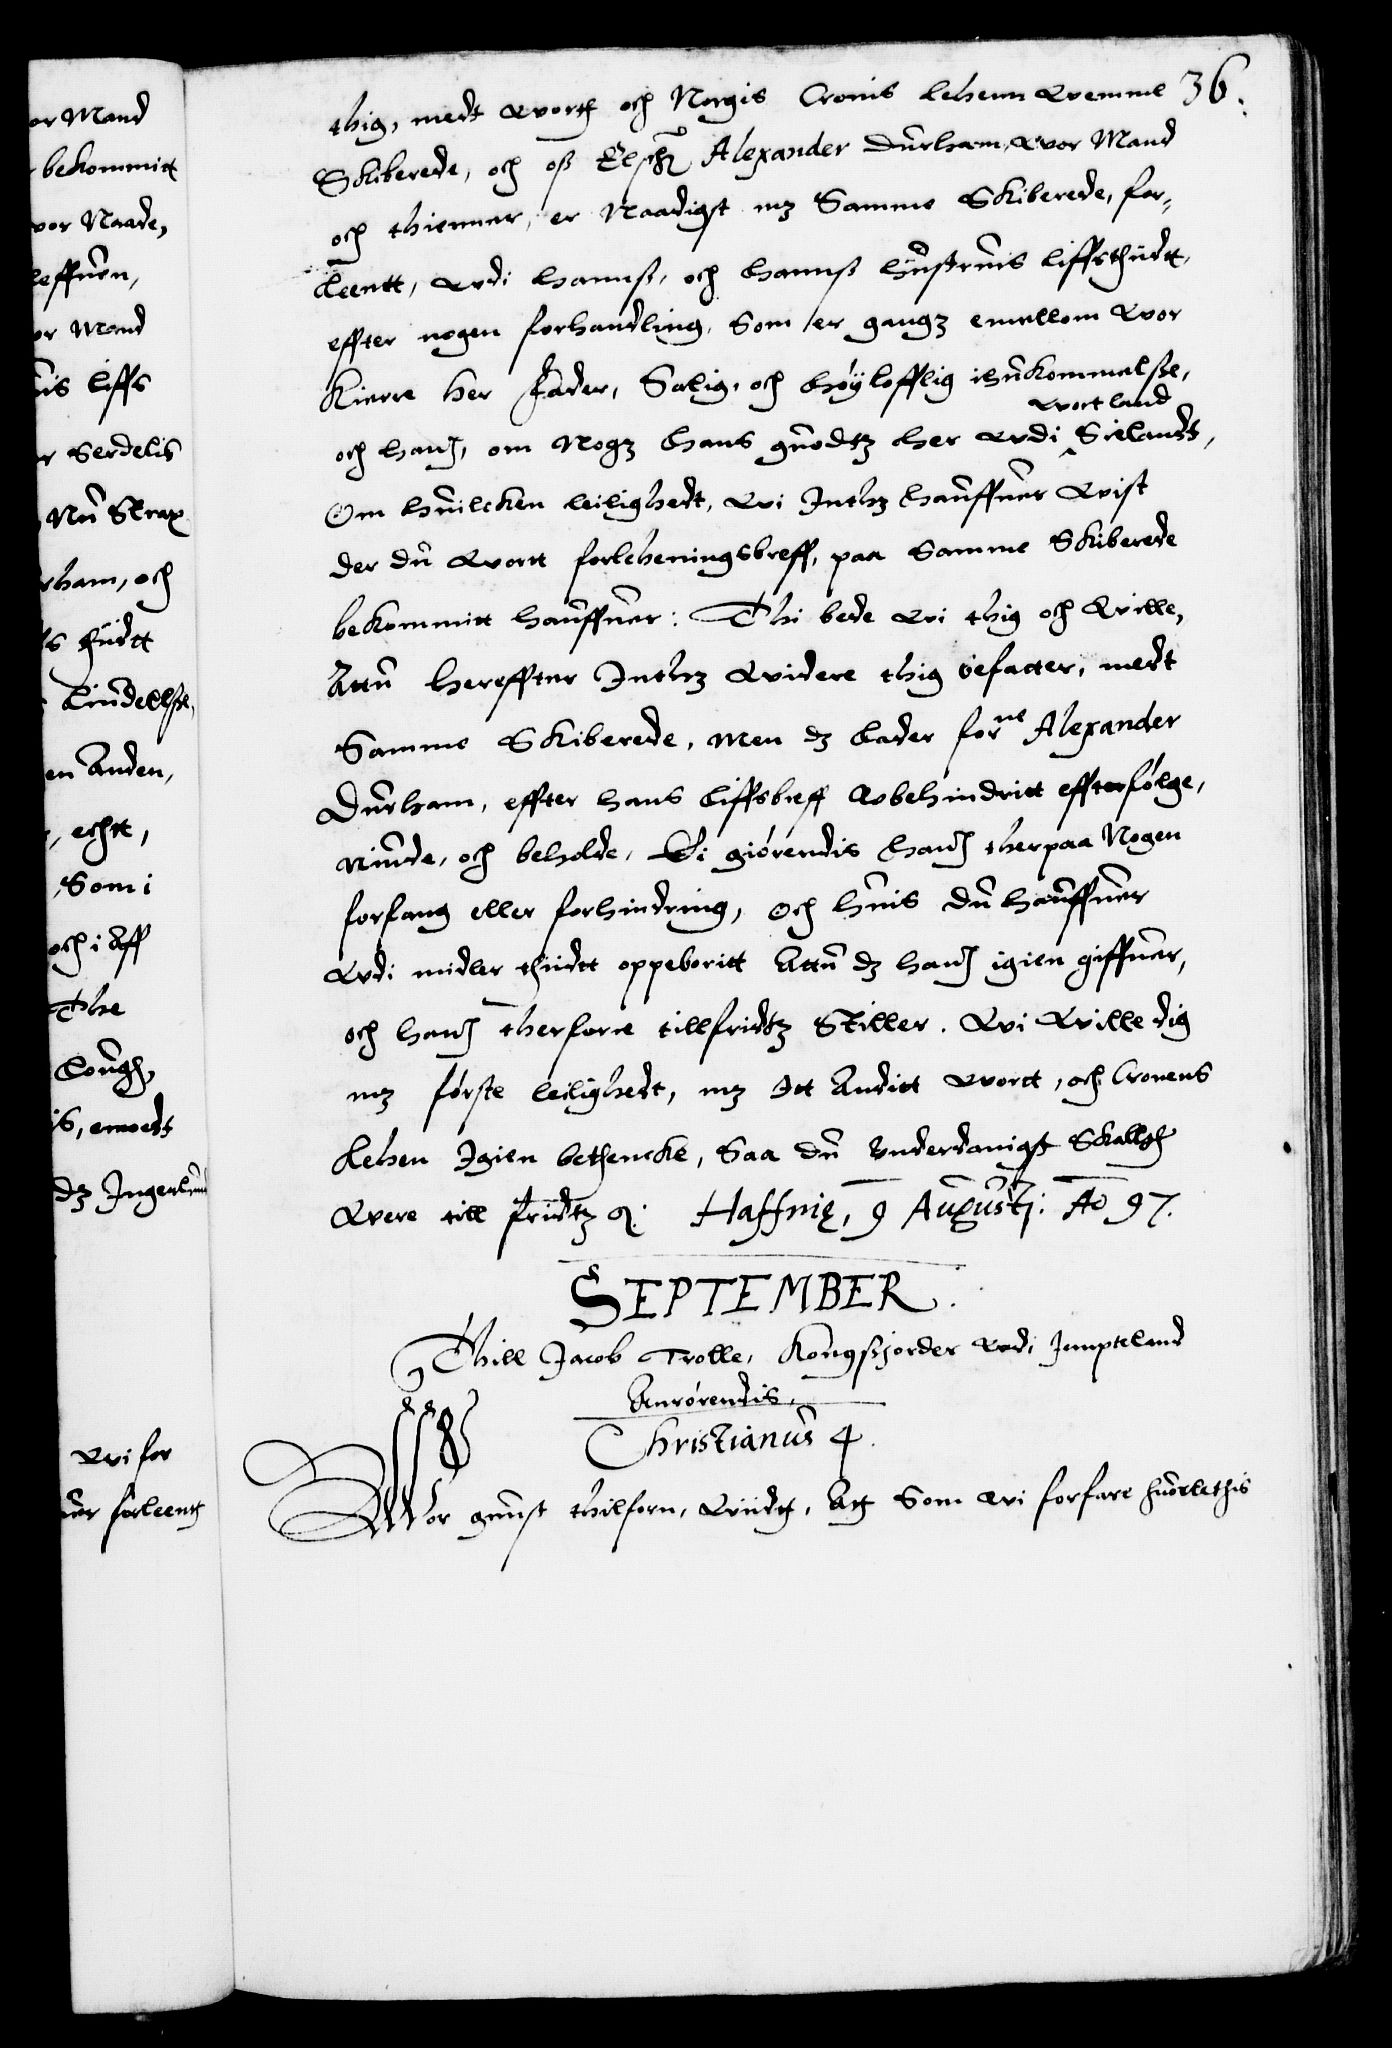 36.
thig, medt wortt och Norgis Cronis lehenn Quemme
Skiberede, och oss Elsch: Alexander Durham, wor Mand
och thiener, er Naadigst mz Samme Skiberede, for-
leentt, udi hanss, och hanss hustruis liffsthidt,
effter nogen forhandling, Som er gangz emellom wor
Kierre her Fader, Salig, och höylofflig ihukommelsse,
och hand, om Nogz hans guodtz her udi wort land Sielandt,
Om huilcken leilighedt, wi Inthz hauffuer wist
der du wortt forleheningsbreff, paa Samme Skiberede
bekommitt hauffuer: Thi bede wi thig och wille,
Attu hereffter Inthz widere thig befatter, medt
Samme Skiberede, Men dz lader forne Alexander
Durham, effter hans liffsbreff wbehindritt effterfölge,
niude, och beholde, Ei giörendis hand therpaa Nogen
forfang eller forhindring, Och huis du hauffuer
udi midler thiidt oppeboritt Attu dz hand igien giffuer,
och hand therforre tillfridtz Stiller. Wi wille dig
mz förste leilighedt, mz Itt Anditt wortt, och Cronens
Lehen Igien bethencke, Saa du Underdanigst Skallth
were till fridtz &. Haffnię, 9 Augustj: Ao 97.
SEPTEMBER.
Thill Jacob Trolle, Kongsjorder udi Jempteland
Anrörendis.
Christianus 4.
Wor gunst thilforn, Wiidtt, Att Som wi forfare huorlethis
or Mand
bekommitt
wor Naade,
leffuen,
or Mand
uis liffs
er Serdelis
Nu Strax
rham, och
ls thiidtt
Lindellsse,
en Anden,
, echtt,
Som i
och i Aff
The
Lough,
is, emoedt
dz Ingenlun
wi for
uer forleentt